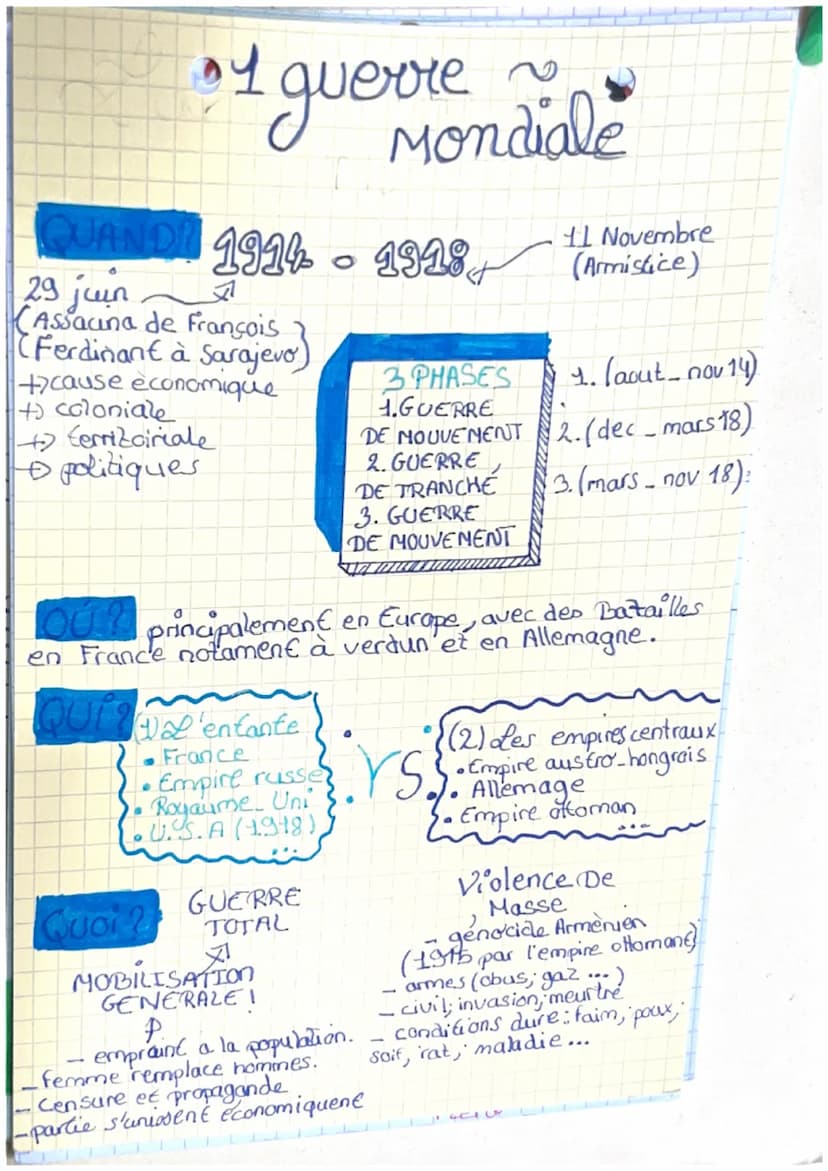 1 guerre
Mondiale
QUAND?
1914 - 1918
11 Novembre
(Armistice)
29 juin
(Assacina de François
Ferdinant à Sarajevo)
+> cause èconomique
+> coloniale
+> territoiriale
+> politiques
3 PHASES
1. GUERRE
DE MOUVEMENT
2. GUERRE
DE TRANCHÉ
3. GUERRE
DE MOUVEMENT
1. (aout - nov 14)
2. (dec - mars 18)
3. (mars - nov 18):
OÚ?
principalement en Europe, avec des Batailles
en France notament à verdun et en Allemagne.
QUI?
(1) L'entante
• France
• Empire russe
• Royaume-Uni
• U.S.A (1918)
...
VS
(2) Les empires centraux
• Empire austro-hongrais
• Allemage
• Empire ottoman
...
Quoi?
GUERRE
TOTAL
MOBILISATION
GENERALE!
- empraint a la population.
- femme remplace hommes.
- censure et propagande
- partie s'unissent économiquene
Violence De
Masse
- génocide Armènien
(1915 par l'empire ottomane)
- armes (obus; gaz ...)
- civil; invasion; meurtre
- conditions dure: faim, poux,
soif, rat, maladie ...